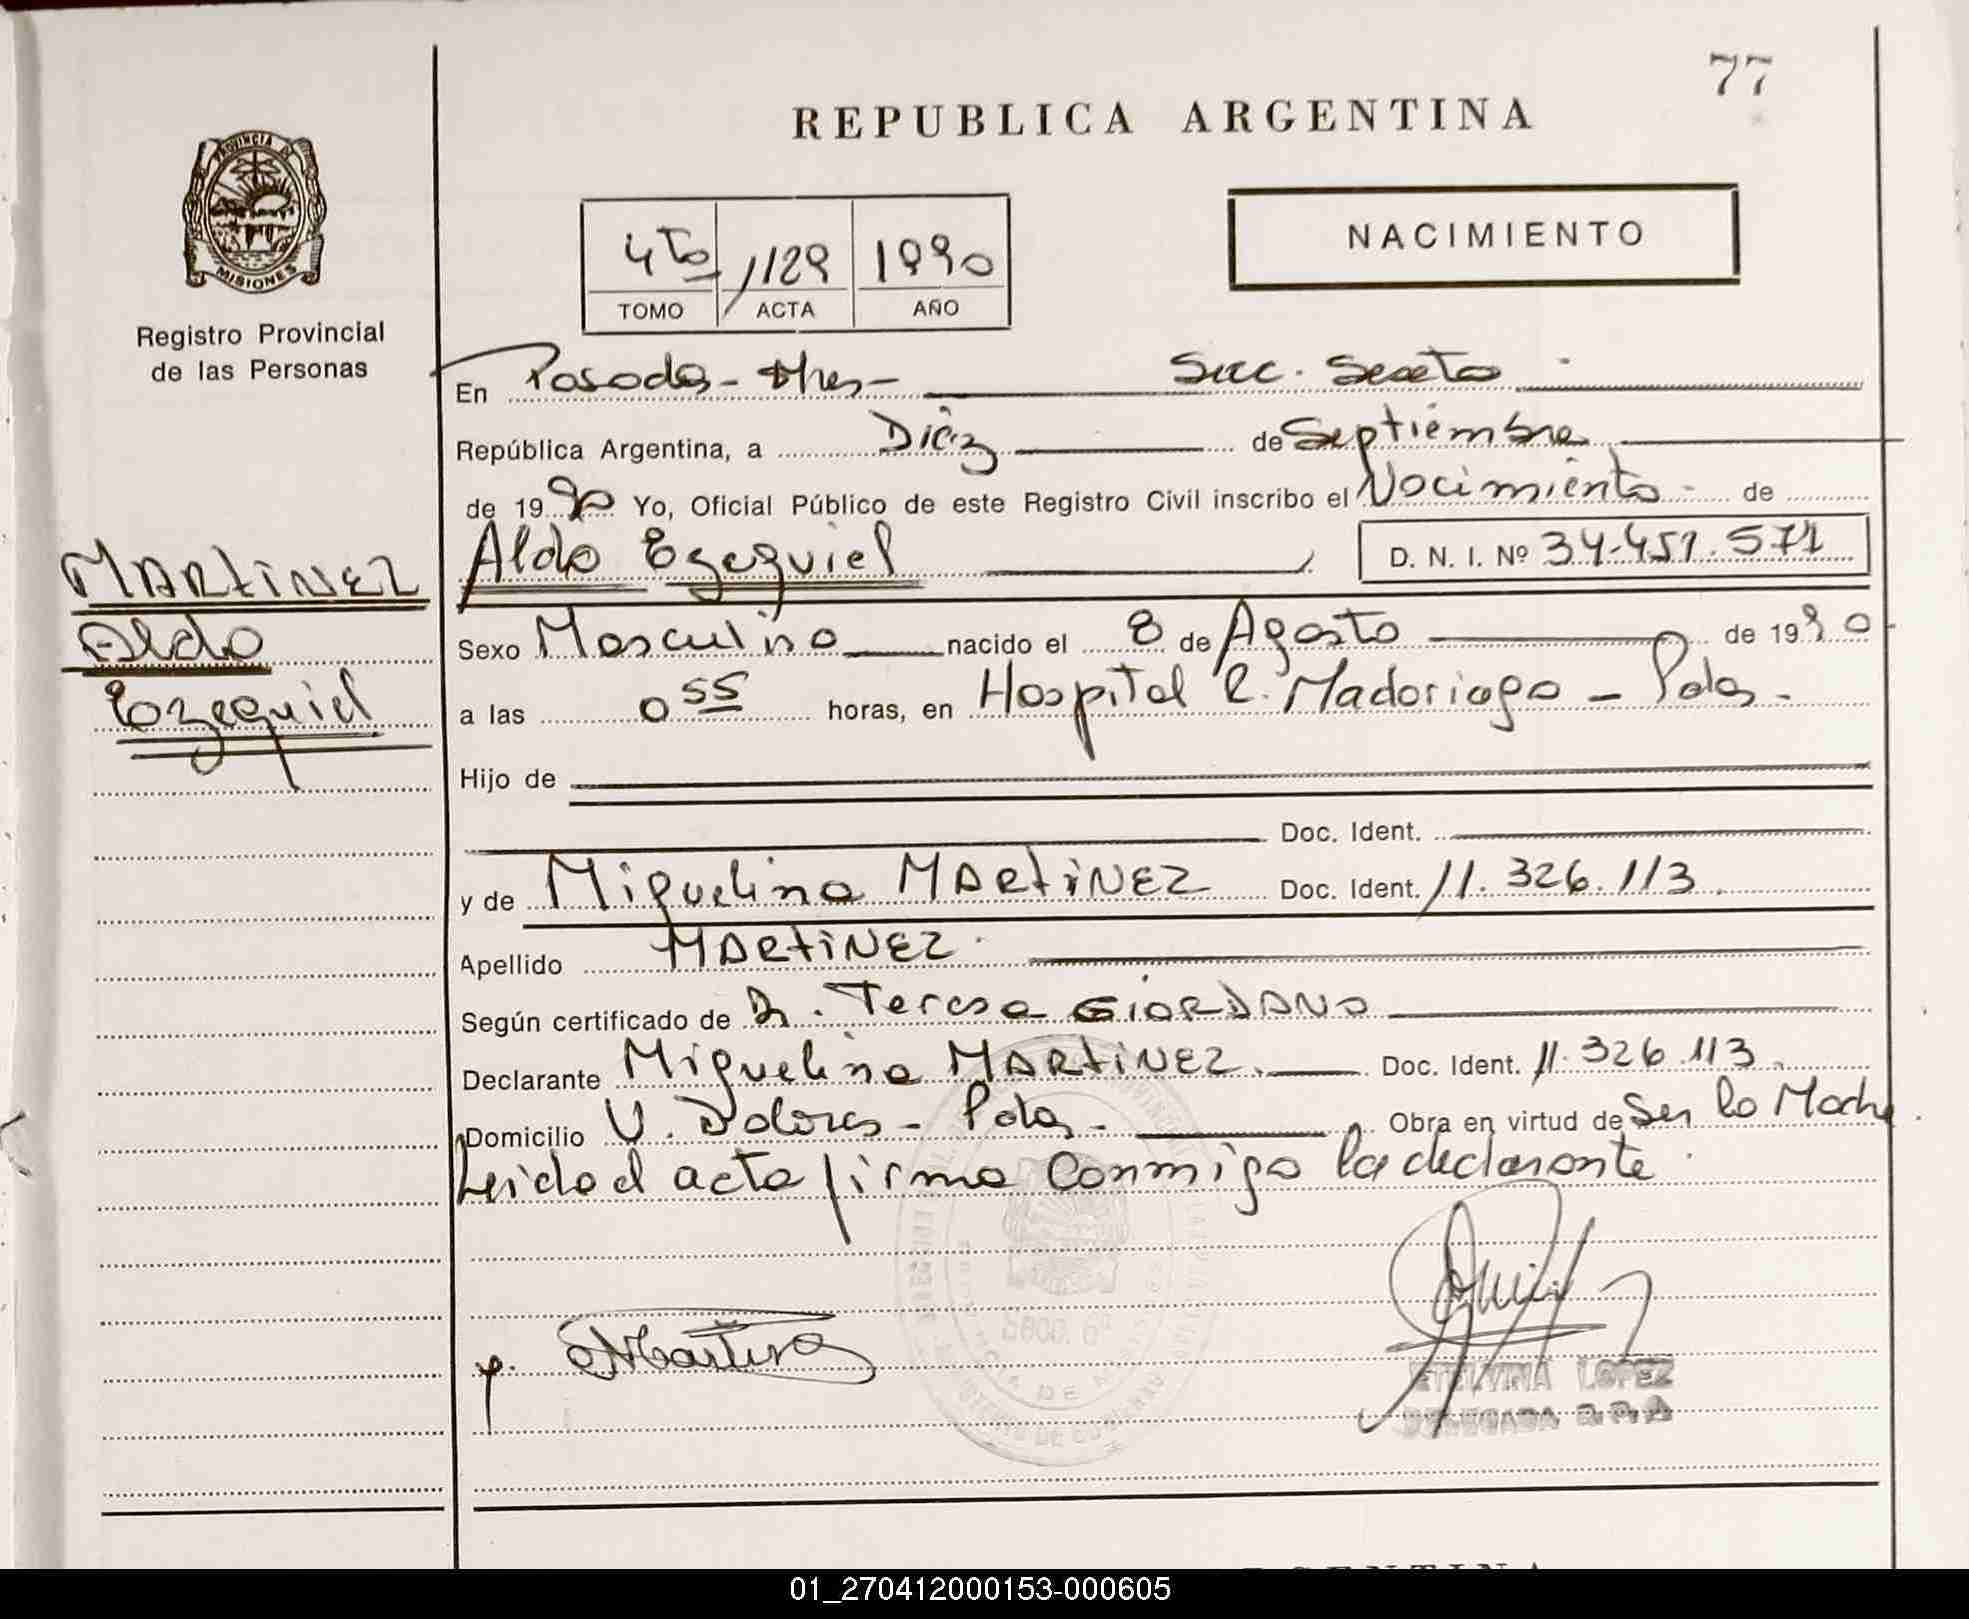 77
REPUBLICA ARGENTINA
PROVINCIA DE
MISIONES
Registro Provincial
de las Personas
4to 1129 1990
TOMO ACTA AÑO
NACIMIENTO
En Posadas - Mnes - Secc. Sexta
República Argentina, a Diez de Septiembre
de 1990 Yo, Oficial Público de este Registro Civil inscribo el Nacimiento - de
Aldo Ezequiel D. N. I. Nº 34.451.571
MARTINEZ
Aldo
Ezequiel
Sexo Masculino nacido el 8 de Agosto de 1990
a las 0 55 horas, en Hospital R. Madariaga - Pdas -
Hijo de
Doc. Ident.
y de Miguelina MARTINEZ Doc. Ident. 11.326.113
Apellido MARTINEZ
Según certificado de Dr. Teresa GIORDANO
Declarante Miguelina MARTINEZ. Doc. Ident. 11.326.113.
Domicilio V. Dolores - Pdas - Obra en virtud de Ser la Madre.
Leida el acta firma conmigo la declarante.
SECC. 6ª
ETELVINA LOPEZ
DELEGADA R. P.
01_270412000153-000605